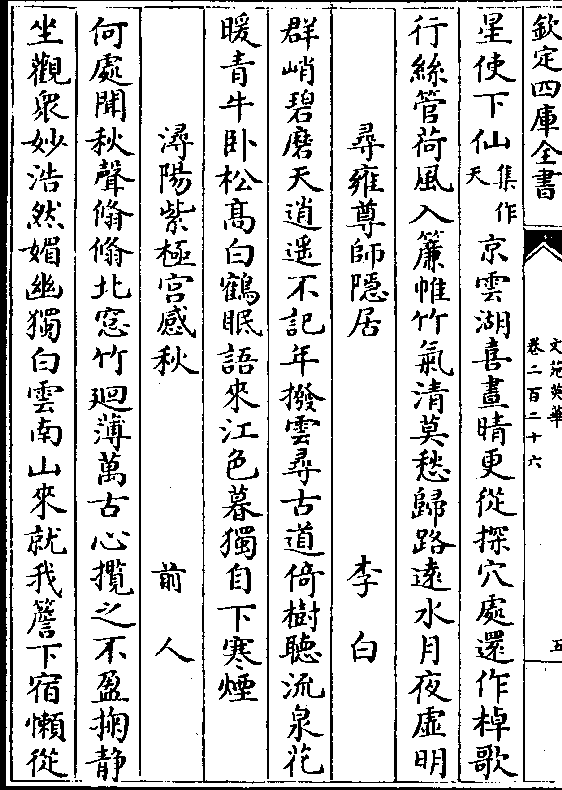 欽定四庫全書
文苑英華
卷二百二十六
五
星使下仙集作天京雲湖喜晝晴更從探穴處還作棹歌
行絲管荷風入簾帷竹氣清莫愁歸路遠水月夜虛明
尋雍尊師隱居 李白
群峭碧磨天逍遥不記年撥雲尋古道倚樹聽流泉花
暖青牛卧松髙白鶴眠語來江色暮獨自下寒煙
潯陽紫極宫感秋 前人
何處聞秋聲翛翛北窓竹廻薄萬古心攬之不盈掬静
坐觀衆妙浩然媚幽獨白雲南山來就我簷下宿懶從